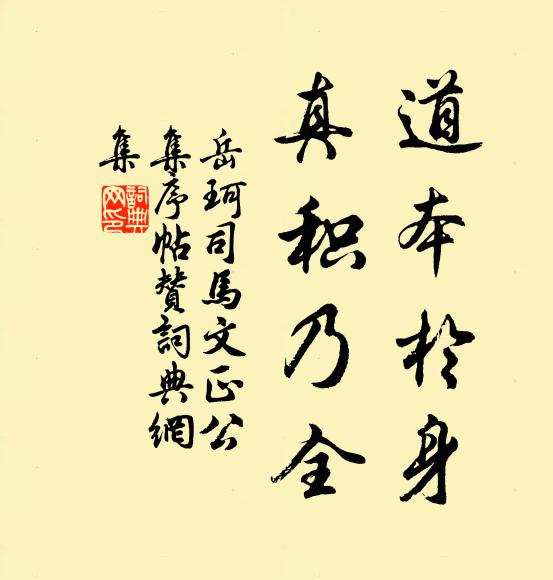 道本於身
真积乃全
岳珂司馬文正公
集序帖賛詞典網
集
詞典网印